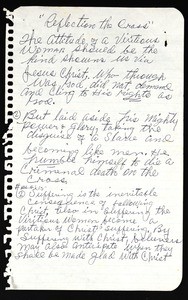 "Reflection the Cross"
The Attitude of a Virtious
Woman should be the
kind shown us Via
Jesus Christ. Who though
Was God did not demand
and cling to His Rights as
God.
② But laid aside his Mighty
Power & glory, taking the
disguise of a Slave and
becoming like men. He
humble himself to die a
Criminal death on the
Cross.
① Suffering is the inevitable
Consequence of following
Christ, also in suffering the
Virtious Woman become "a
partaker of Christ" suffering. By
Suffering with Christ, believers
may also anticipate when they
shall be made glad with Christ